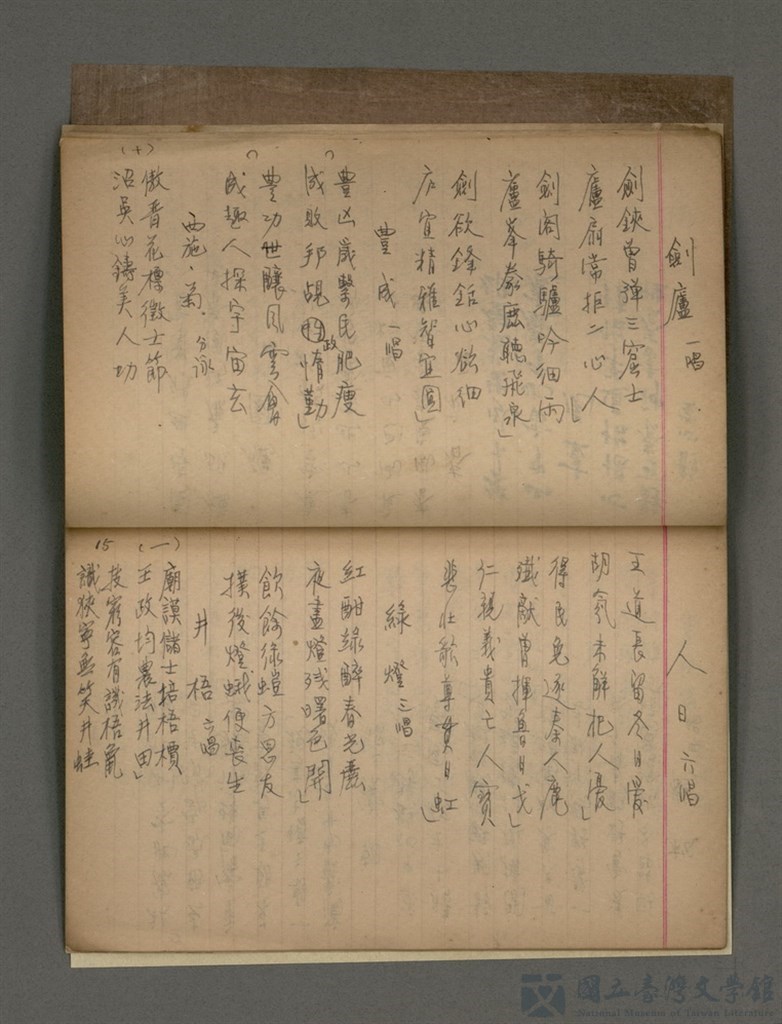 劍廬 一唱
劍鋏曾彈三窟士
廬扇常拒二心人」
劍閣騎驢吟細雨
廬峯參鹿聽飛泉」
劍欲鋒銛心欲細
宜精雅智宜圓
豐成 一唱
豐凶歲繫民肥瘦
成敗邦覘政惰勤」
豐功世釀風雲會
成趣人探宇宙玄
西施・菊 分詠
傲香花標徵士節
沼吳心鑄美人功
(十)
人日 六唱
王道長留冬日愛
胡氛未解杞人憂」
得民免逐秦人鹿
殲獻曾揮魯日戈」
仁親義貴亡人寶
氣壯歌尊貫日虹」
綠燈 三唱
紅酣綠醉春光
夜盡燈殘曙色開」
飲餘綠螘方思友
撲後燈蛾便喪生
井梧 六唱
廟謨儲士梧檟
王政均農法井田」
技窮容有識梧鼠
識狹寧無笑井蛙
15 (一)
國立臺灣文學館
National Museum of Taiwan Literature